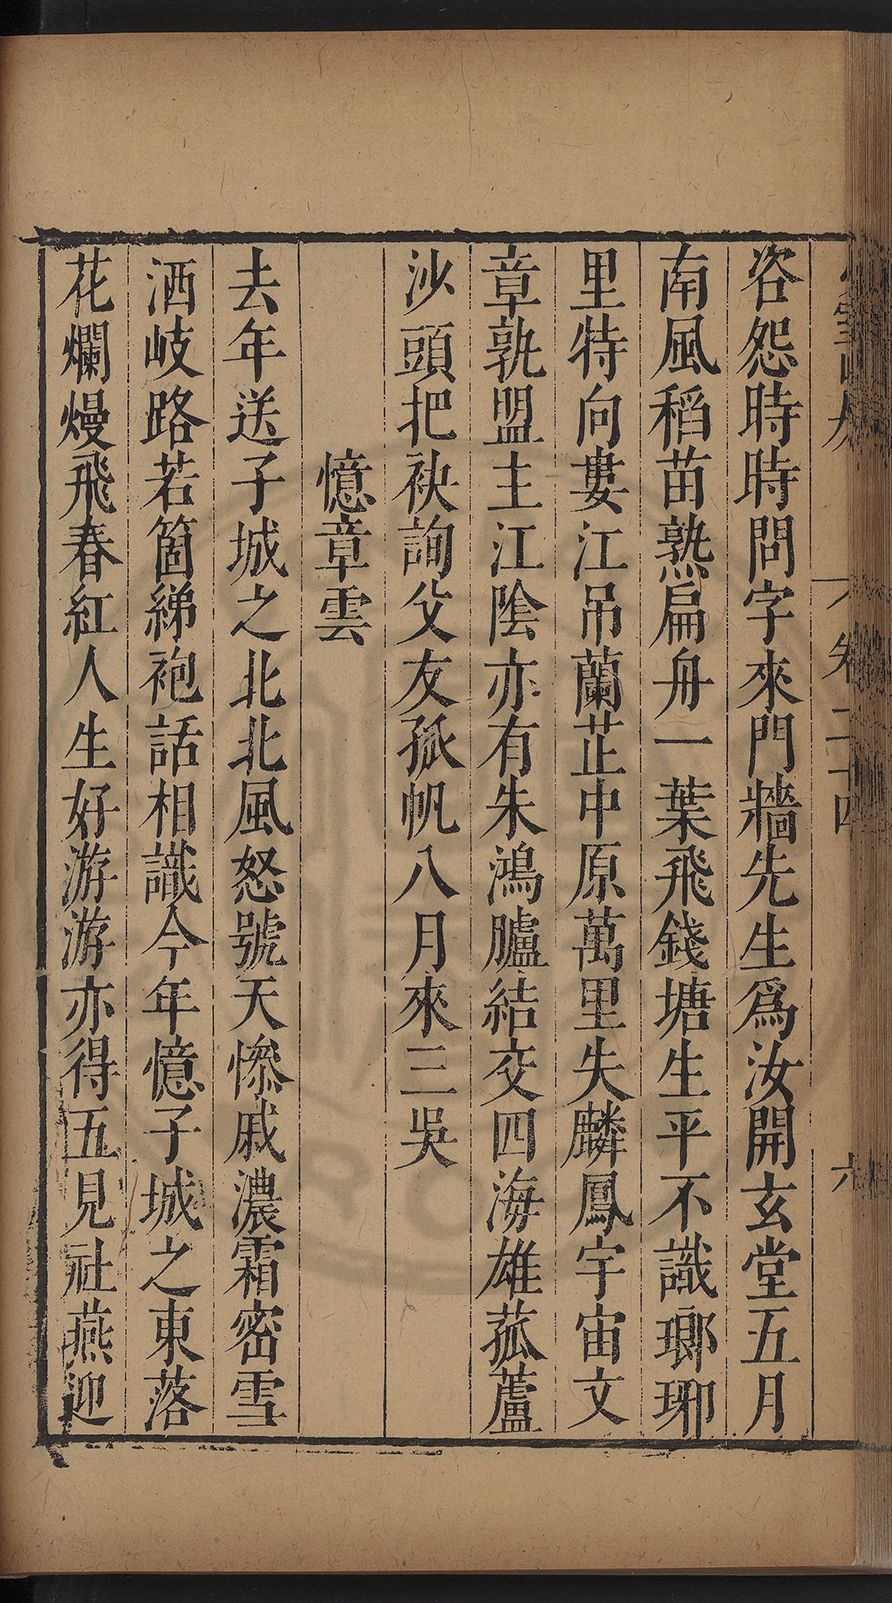 卷二十四
六
咨怨時時問字來門牆先生爲汝開玄堂五月
南風稻苗熟扁舟一葉飛錢塘生平不識瑯琊
里特向婁江吊蘭芷中原萬里失麟鳳宇宙文
章孰盟主江陰亦有朱鴻臚結交四海雄菰蘆
沙頭把袂詢父友孤帆八月來三吳
憶章雲
去年送子城之北北風怒號天慘戚濃霜密雪
洒岐路若箇綈袍話相識今年憶子城之東落
花爛熳飛春紅人生好游游亦得五見社燕迎